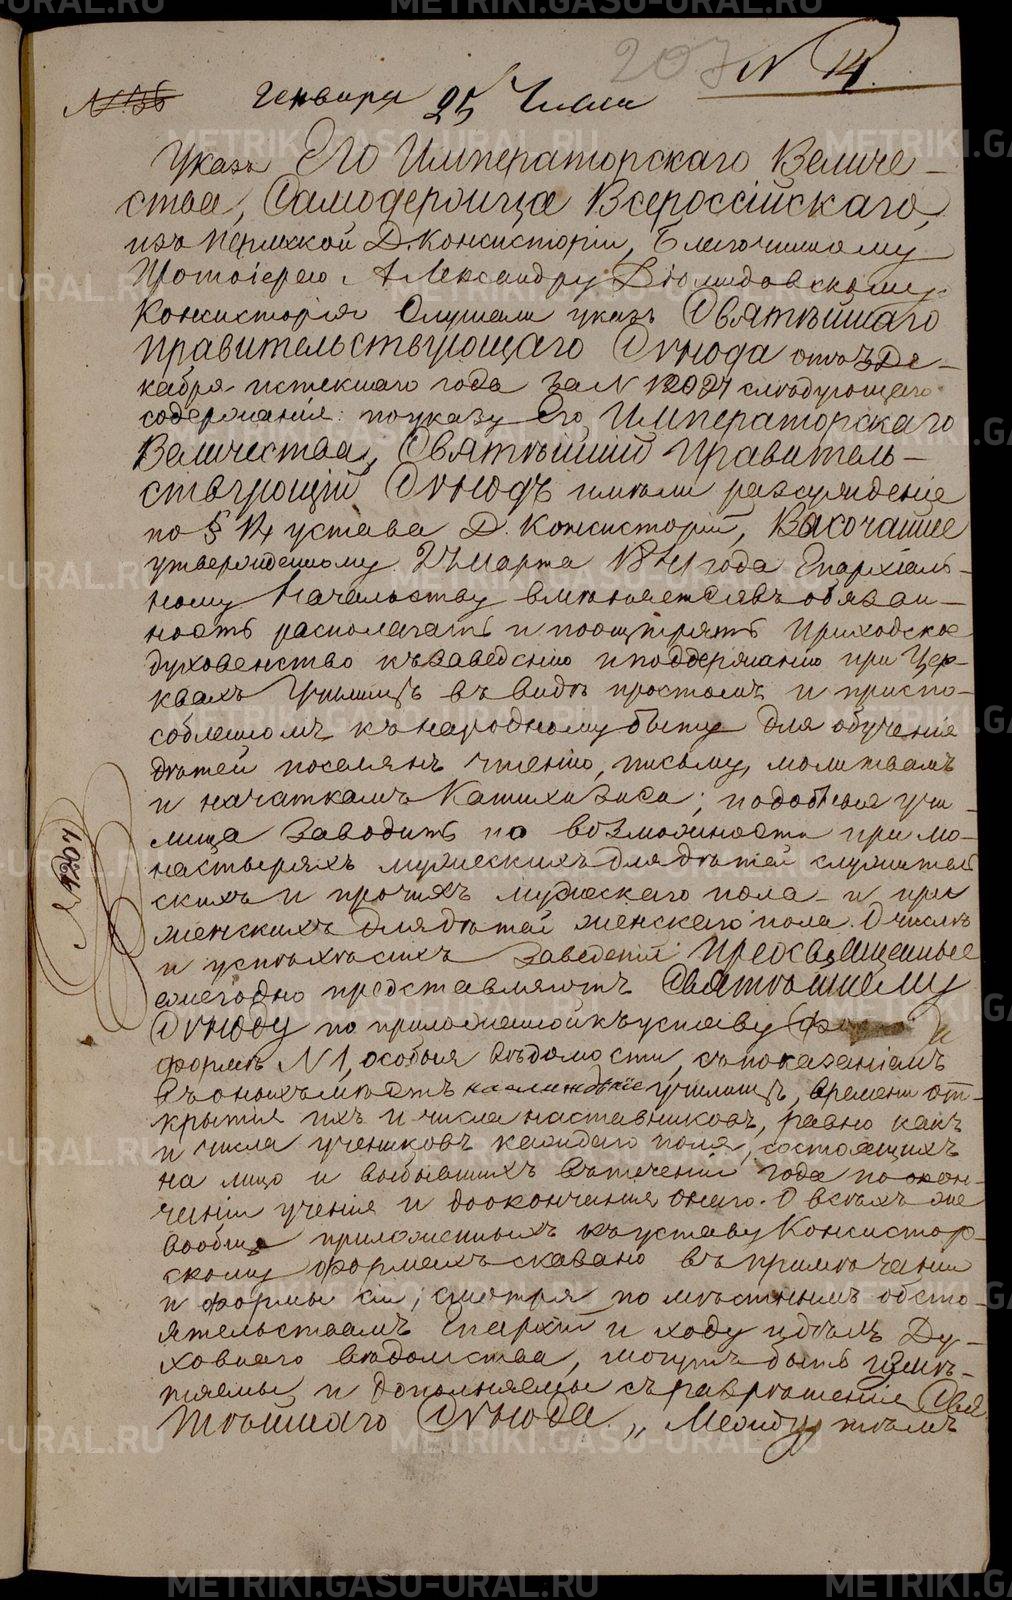 203 N 14.
N 136 Генваря 25 Числа
Указъ Его Императорскаго Величе-
ства, Самодержца Всероссійскаго,
изъ Пермской Д. Консисторіи, Благочинному
Протоіерею Александру Діомидовскому.
Консисторія Слушали указъ Святѣйшаго
Правительствующаго Сѵнода отъ Де-
кабря истекшаго года за N 12027 слѣдующаго
содержанія: по указу Его Императорскаго
Величества, Святѣйшій Правитель-
ствующій Сѵнодъ имѣли разсужденіе
по § 14 устава Д. Консисторій, Высочайше
утвержденному 27 Марта 1841 года Епархіаль-
ному Начальству вмѣняется въ обязан-
ность располагать и поощрять Приходское
духовенство къ заведенію и поддержанію при Цер-
квахъ Училищъ въ видѣ простомъ и приспо-
собленномъ къ народному быту для обученія
дѣтей поселянъ чтенію, письму, молитвамъ
и начаткамъ Катихизиса; подобныя учи-
лища заводить по возможности при мо-
настыряхъ мужескихъ для дѣтей служитель
скихъ и прочихъ мужескаго пола и при
женскихъ для дѣтей женскаго пола. О числѣ
и успѣхѣ сихъ заведеній Преосвященные
ежегодно представляютъ Святѣйшему
Сѵноду по приложенной къ уставу
формѣ N 1, особыя вѣдомости, съ показаніемъ
въ оныхъ мѣстъ нахожденіе училищъ, времени от-
крытія ихъ и числа наставниковъ, равно какъ
и числа учениковъ каждаго пола, состоящихъ
на лицо и выбывшихъ въ теченіи года по окон-
чаніи ученія и до окончанія онаго. О всѣхъ же
вообще приложенныхъ къ уставу Консистор-
скому формахъ сказано въ примѣчаніи
и формы сіи, смотря по мѣстнымъ обсто-
ятельствамъ Епархій и ходу и дѣлъ Ду-
ховнаго вѣдомства, могутъ быть измѣ-
няемы и дополняемы съ разрѣшенія Свя
тѣйшаго Сѵнода „ Между тѣмъ
METRIKI.GASO-URAL.RU